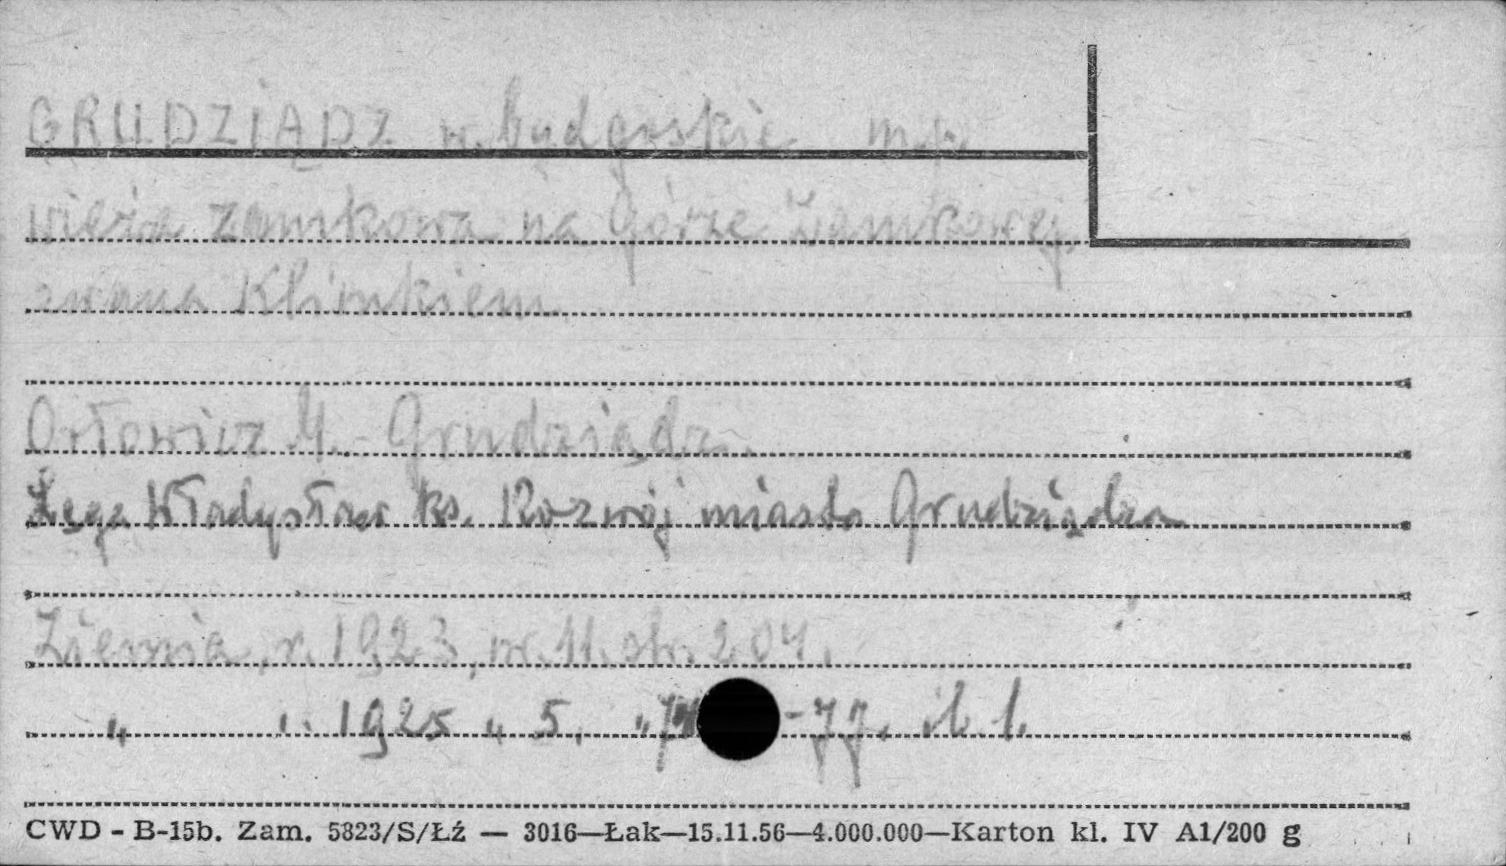 GRUDZIĄDZ w. bydgoskie m.p.
wieża zamkowa na Górze Zamkowej
zwana Klimkiem.
Orłowicz M. - Grudziądz.
Łęga Władysław ks. Rozwój miasta Grudziądza
Ziemia, r. 1923, nr. 11. str. 204.
„ „ 1925 „ 5, „ -77. il. 1.
CWD - B-15b. Zam. 5823/S/Łź — 3016—Łak—15.11.56—4.000.000—Karton kl. IV A1/200 g